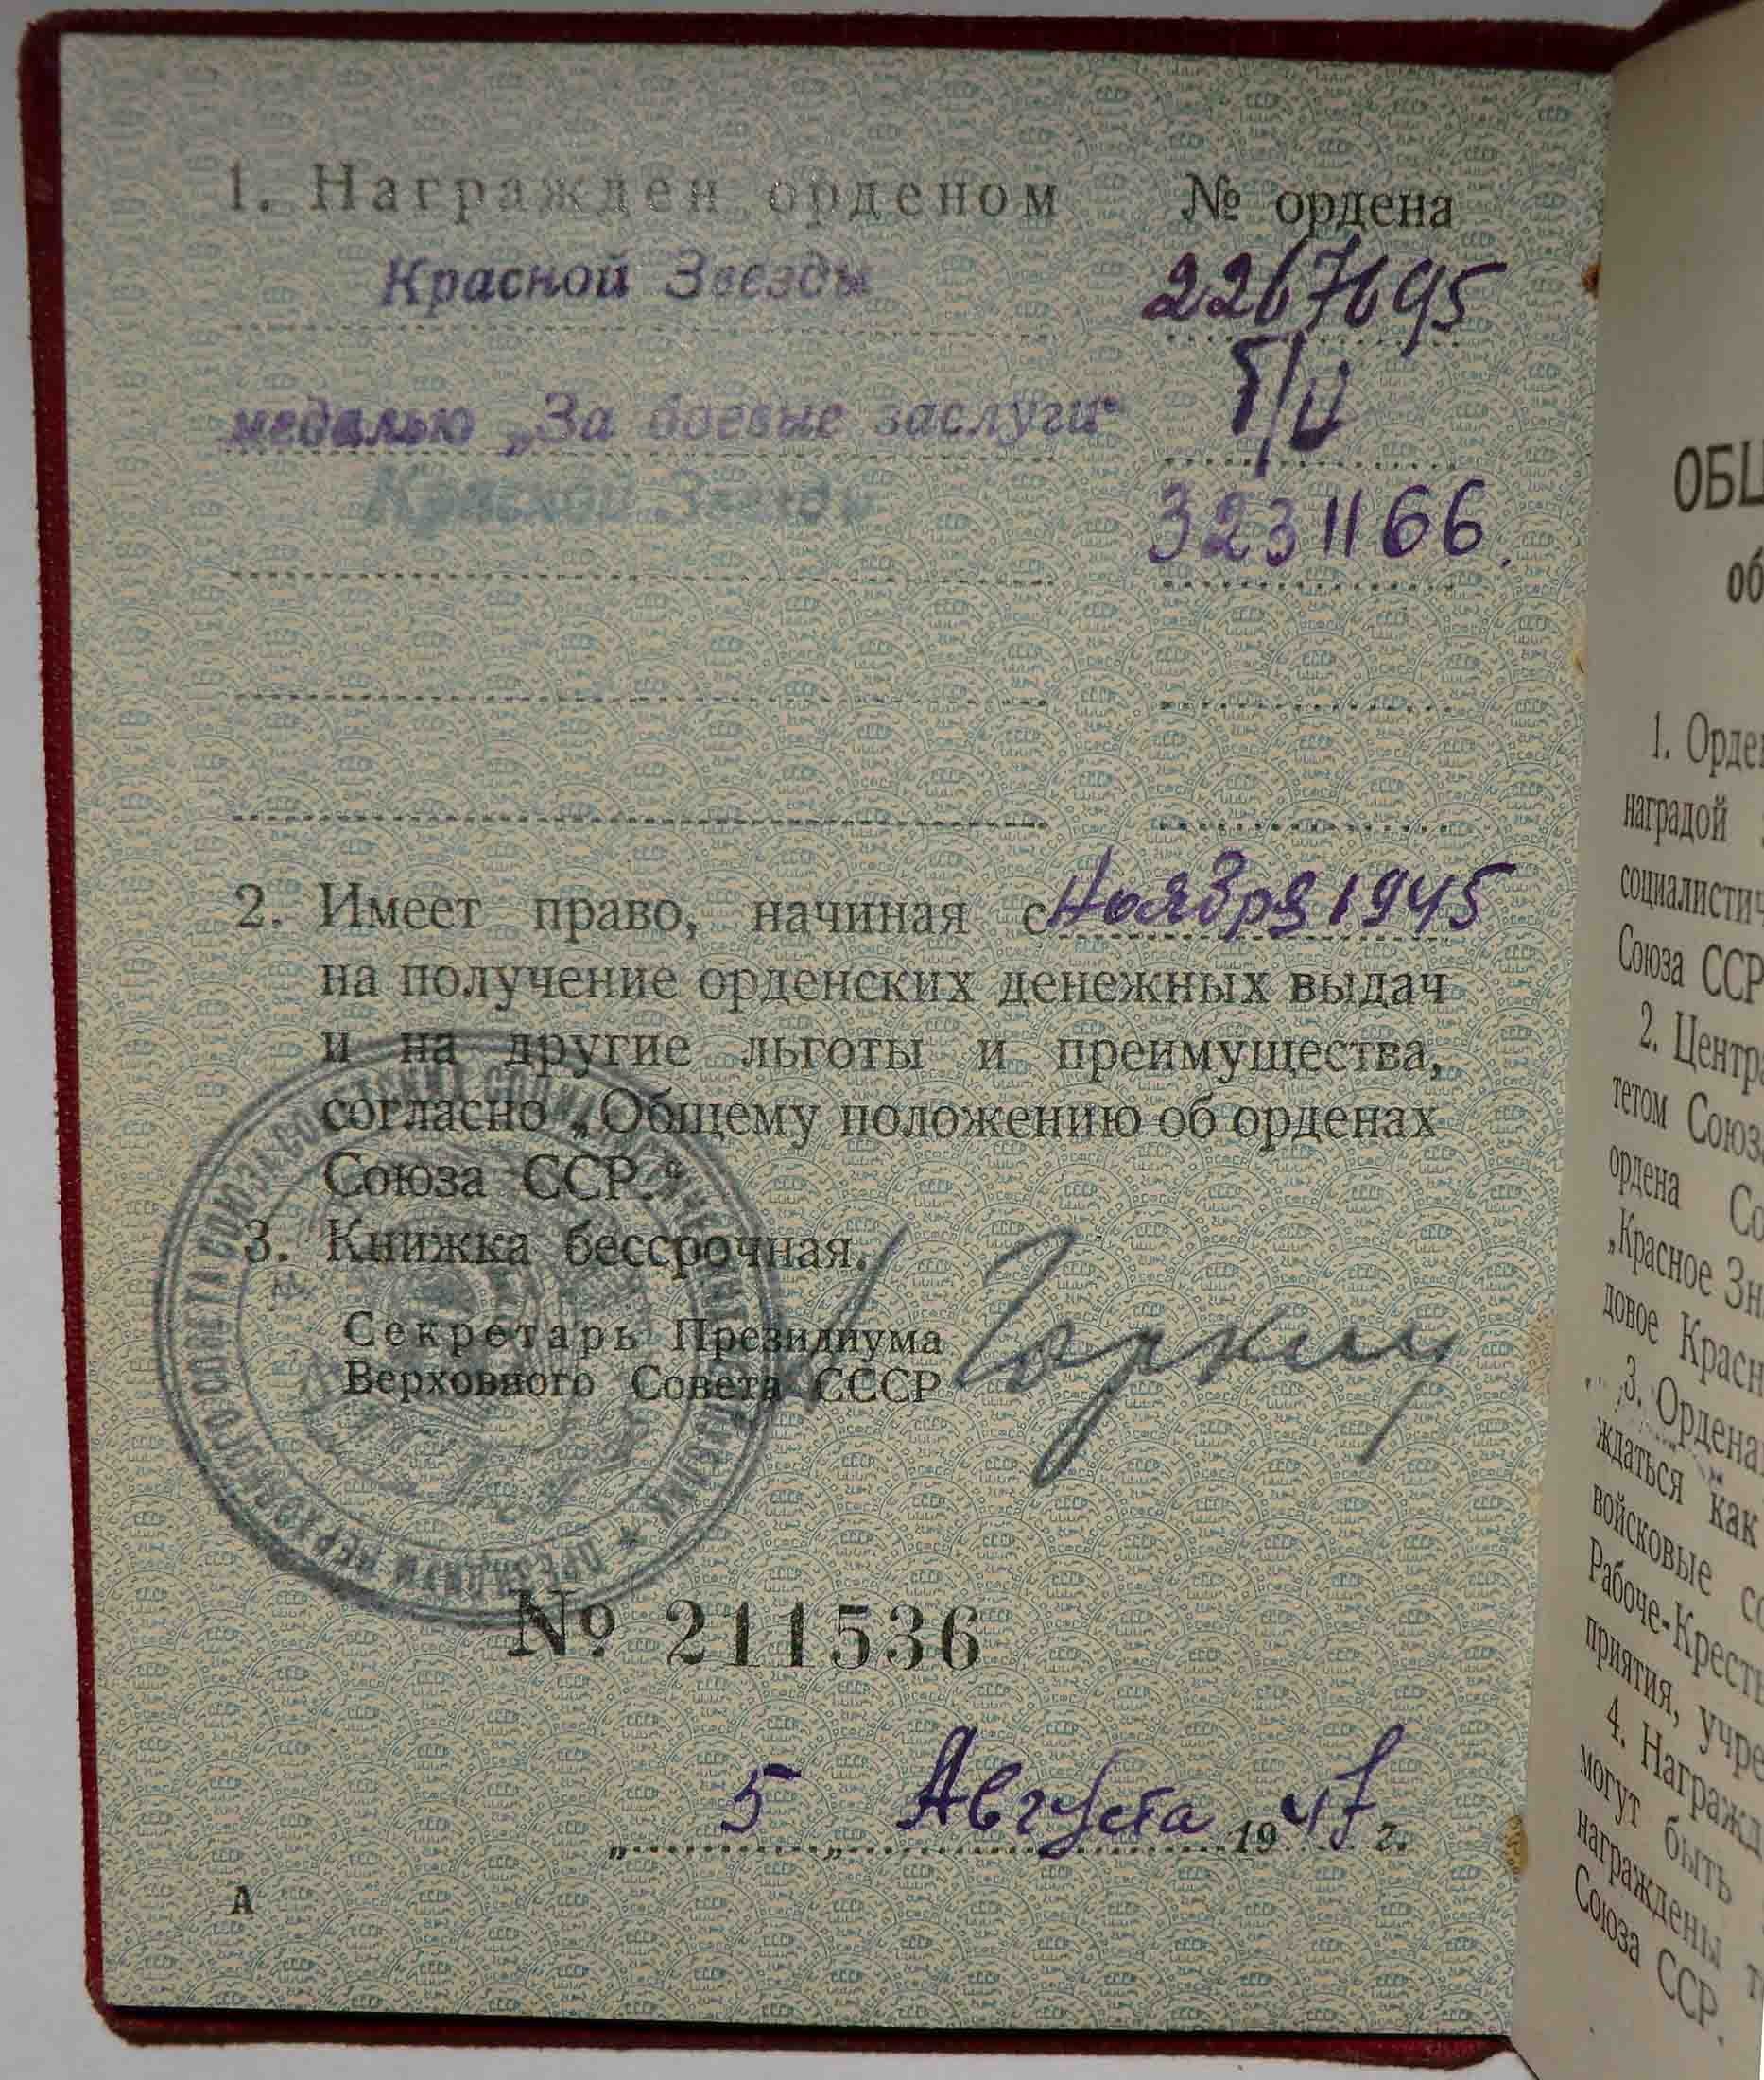 1. Награжден орденом № ордена
Красной Звезды 2267695
медалью „За боевые заслуги“ Б/Н
Красной Звезды 3231166.
2. Имеет право, начиная с Ноября 1945
на получение орденских денежных выдач
и на другие льготы и преимущества,
согласно „Общему положению об орденах
Союза ССР.“
3. Книжка бессрочная.
Секретарь Президиума
Верховного Совета СССР А Горкин
ПРЕЗИДИУМ ВЕРХОВНОГО СОВЕТА СОЮЗА СОВЕТСКИХ СОЦИАЛИСТИЧЕСКИХ РЕСПУБЛИК
№ 211536
„5„ Августа 1947 г.
А
ОБЩ
об
1. Орден
наградой
социалисти
Союза ССР
2. Центра
тетом Союз
ордена Со
„Красное Зн
довое Красн
3. Ордена
ждаться как
войсковые с
Рабоче-Крест
приятия, учре
4. Награжд
могут быть
награждены т
Союза ССР.